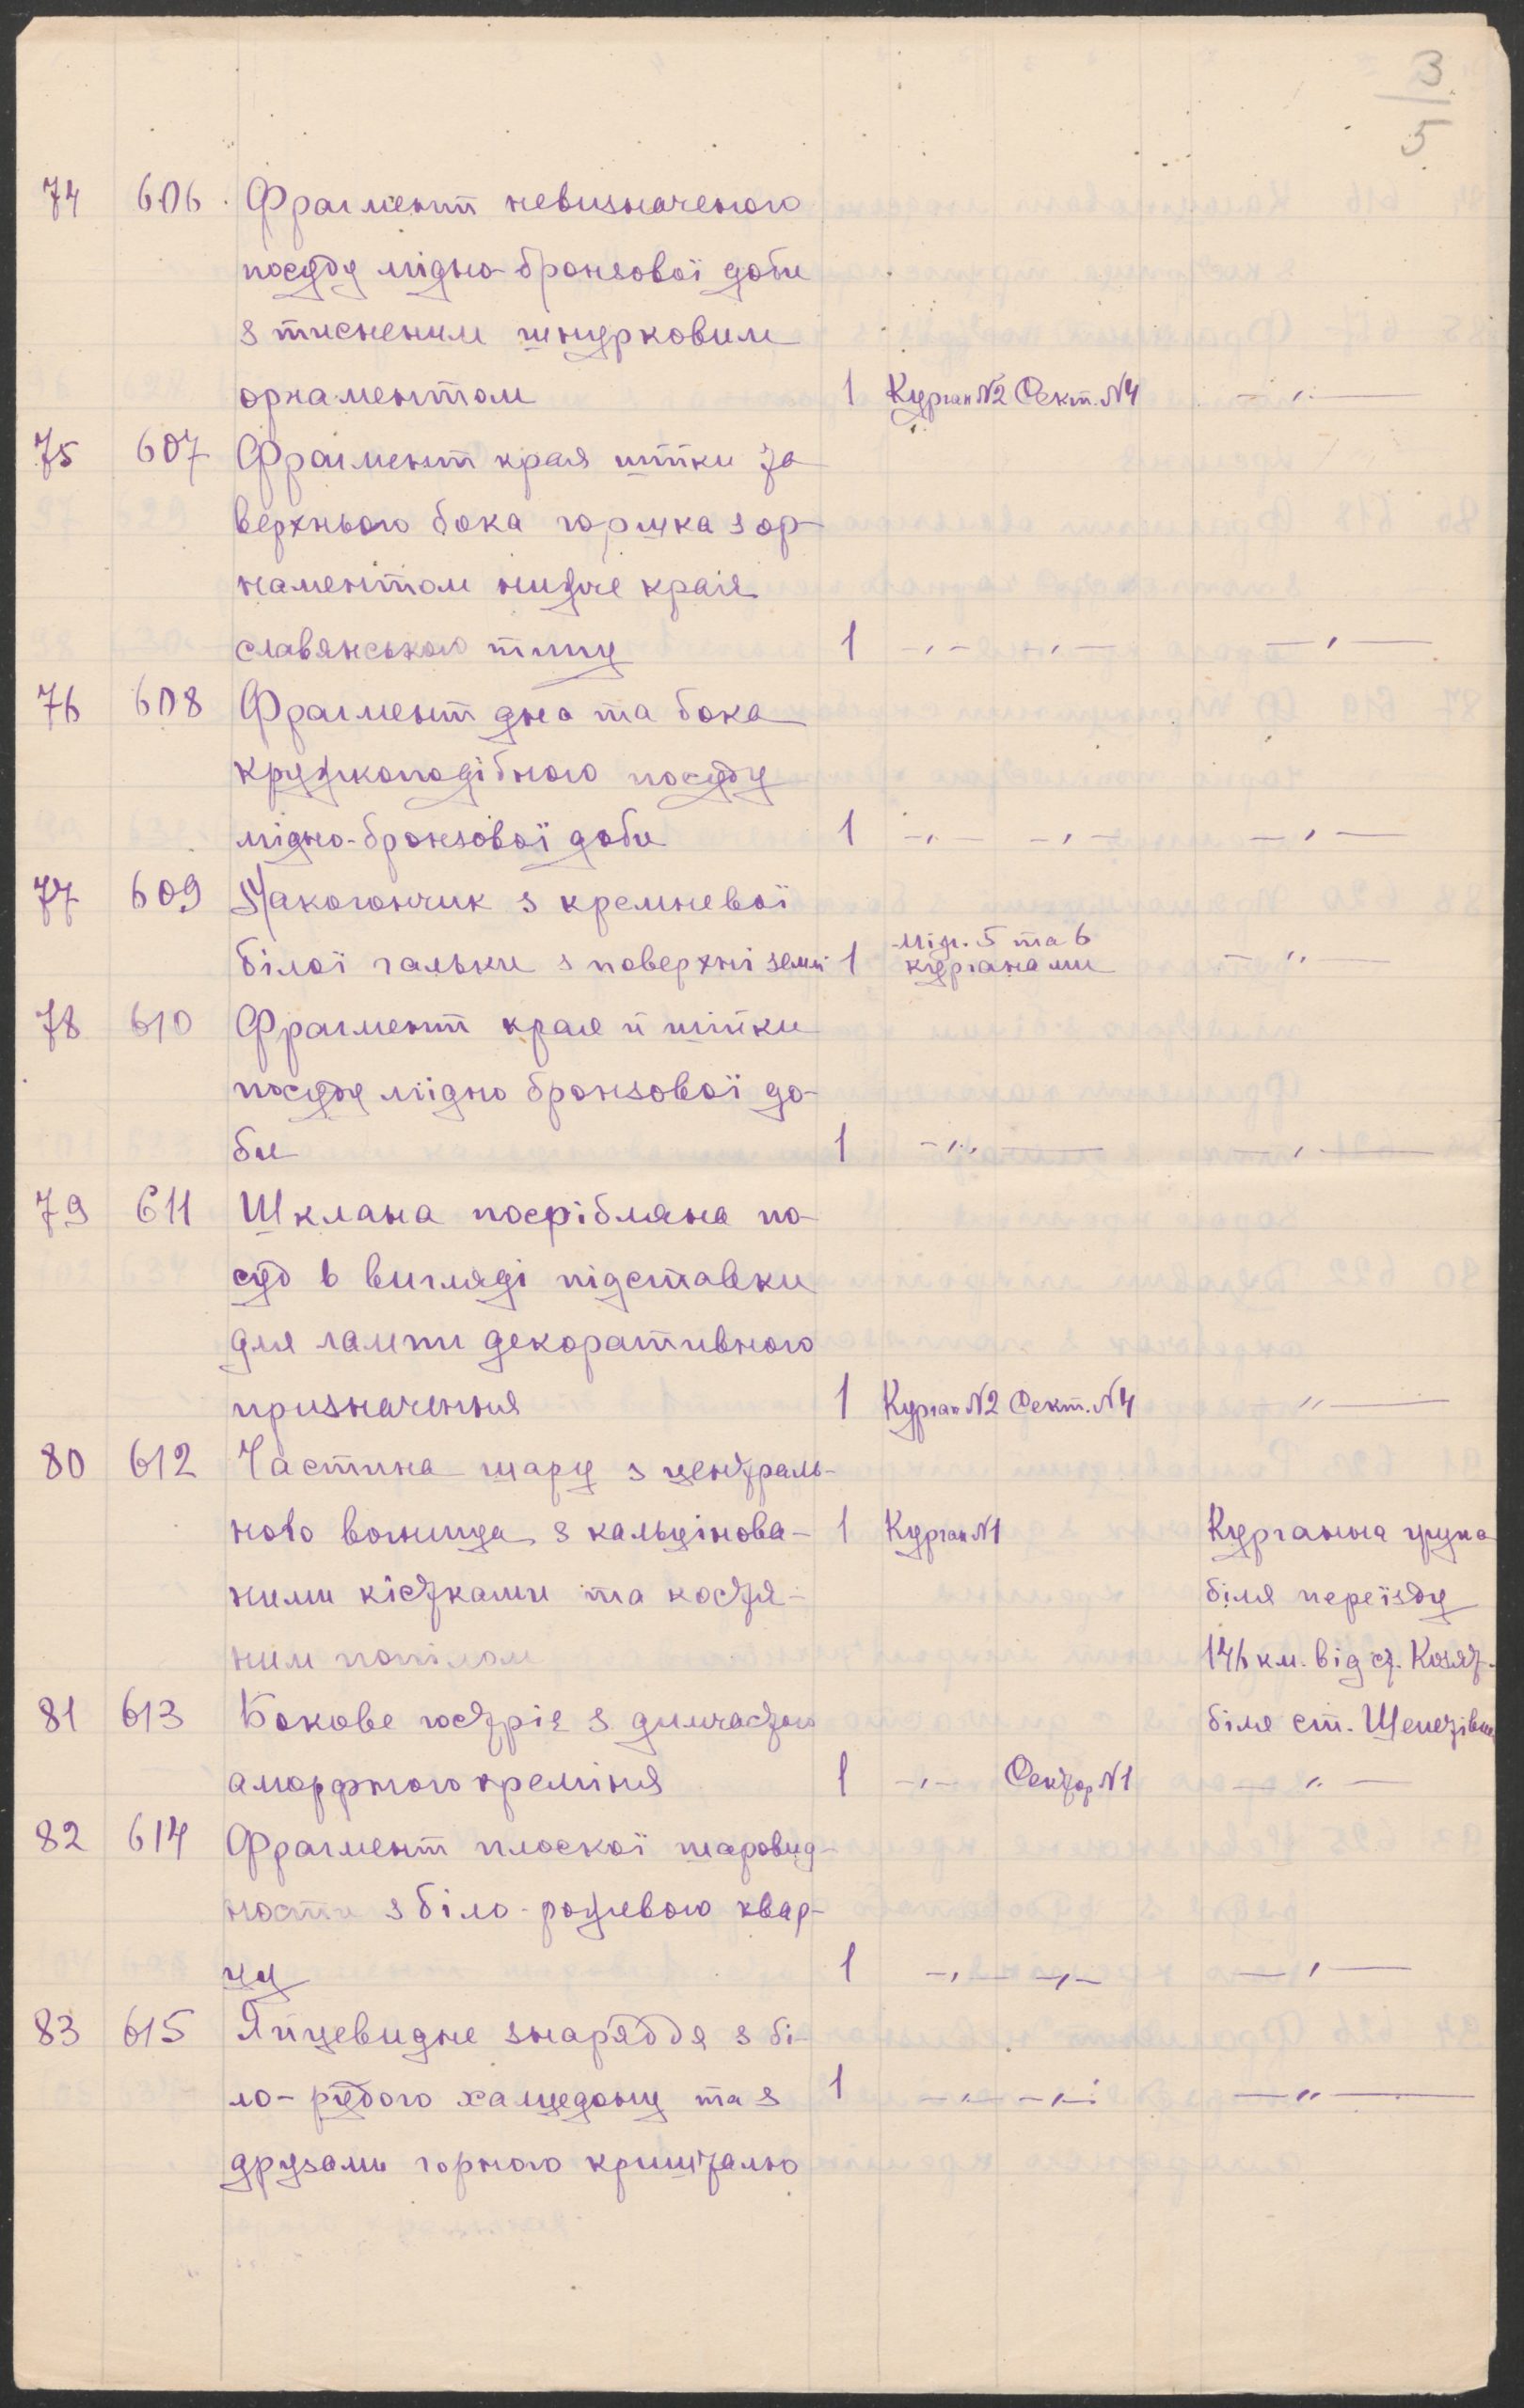 3
5
74 606 Фрагмент невизначеного
посуду мідно-бронзової доби
з тисненим шнурковим
орнаментом 1 Курган №2 Сект. №4 —„—
75 607 Фрагмент края шийки за
верхнього бока горшка з ор-
наментом нижче края
славянського типу 1 —„— —„— —„—
76 608 Фрагмент дна та бока
кружкоподібного посуду
мідно-бронзової доби 1 —„— —„— —„—
77 609 Макогончик з кремневої
білої гальки з поверхні землі 1 між. 5 та 6 курганами —„—
78 610 Фрагмент края й шийки
посуду мідно бронзової до-
би 1 —„— —„—
79 611 Шклана посрібляна по-
суд в вигляді підставки
для лампи декоративного
призначення 1 Курган №2 Сект. №4 —„—
80 612 Частина шару з централь-
ного вогнища з кальцінова- 1 Курган №1 Курганна група
ними кістками та костя- біля переїзду
ним попілом 146 км. від ст. Козят.
81 613 Бокове гостріє з димчастого біля ст. Шепетівки
аморфного креміния 1 —„— Сектор №1 —„—
82 614 Фрагмент плоскої шаровид-
ности з біло-рожевого квар-
цу 1 —„— —„— —„—
83 615 Яйцевидне знаряддя з бі-
ло-рудого халцедону та з 1 —„— —„— —„—
друзами горного кришталю